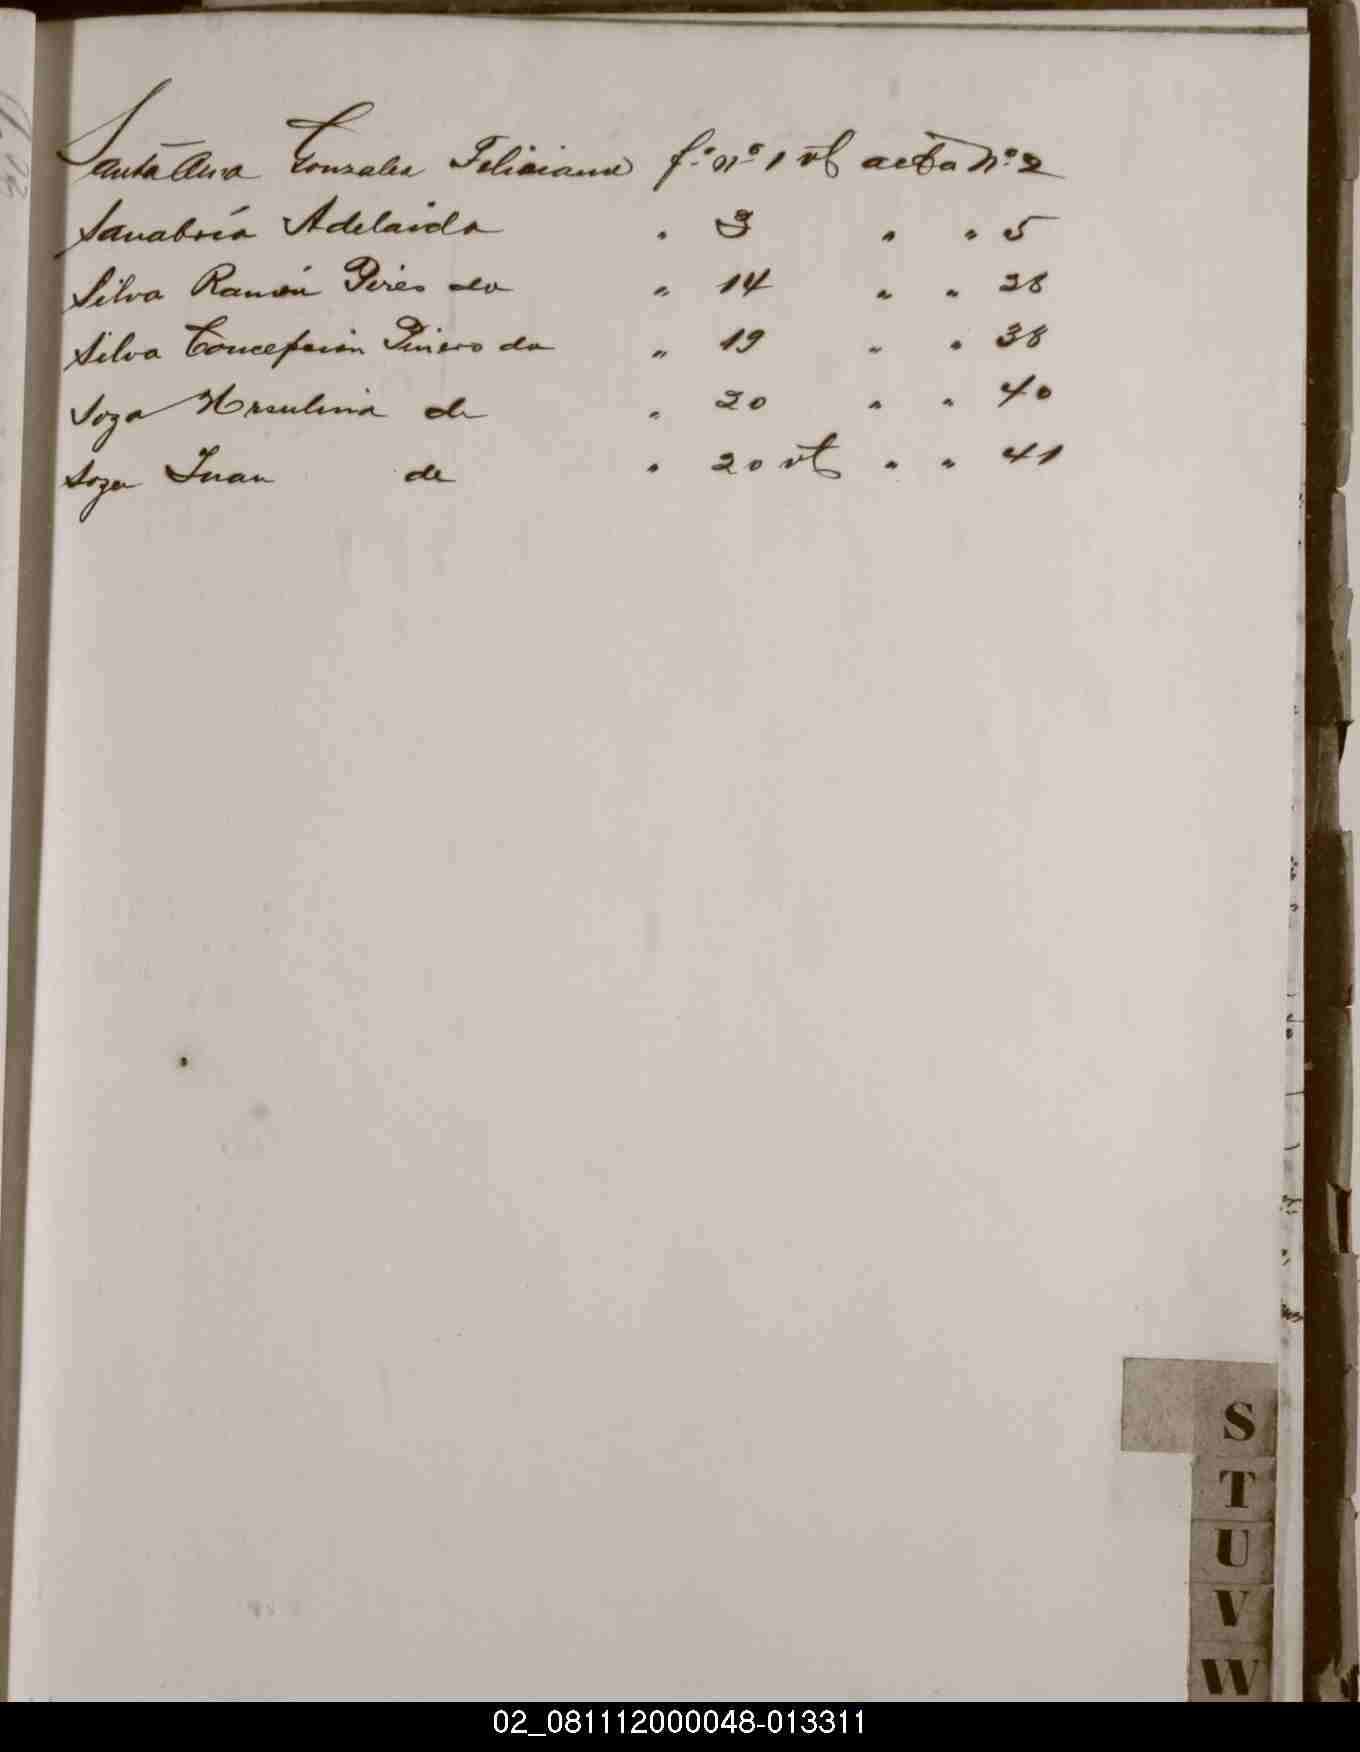 Santa Ana Gonzalez Feliciana f.º nº 1 vt acta Nº 2
Sanabria Adelaida " 3 " " 5
Silva Ramón Pires da " 14 " " 28
Silva Concepción Piñero da " 19 " " 38
Soza Ursulina de " 20 " " 40
Soza Juan de " 20 vt " " 41
S
T
U
V
W
02_081112000048-013311